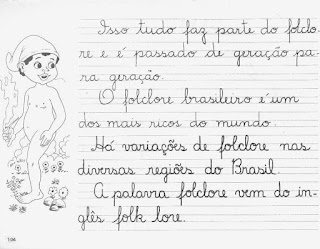 Isso tudo faz parte do folclo-
re e é passado de geração pa-
ra geração.
O folclore brasileiro é um
dos mais ricos do mundo.
Há variações de folclore nas
diversas regiões do Brasil.
A palavra folclore vem do in-
glês folk lore.
106